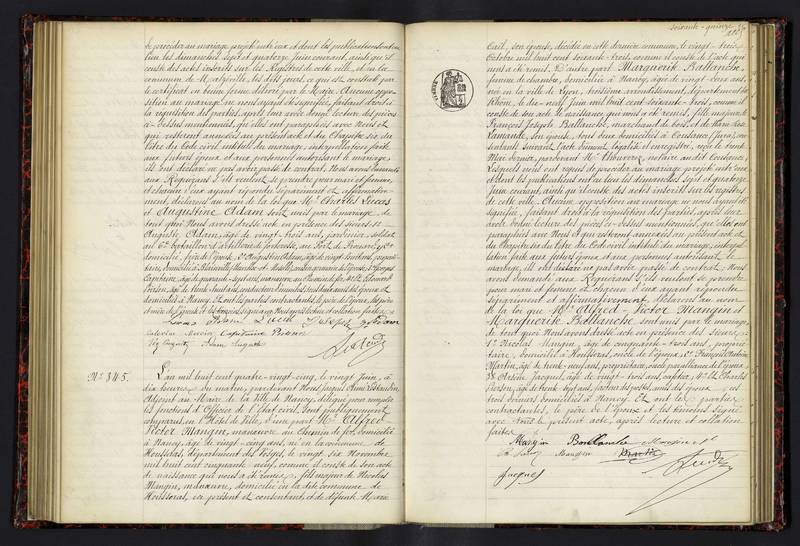 de procéder au mariage projeté entr'eux et dont les publications ont eu
lieu les dimanches sept et quatorze Juin courant, ainsi qu'il
conste des actes inscrits sur les Registres de cette ville, et en la
commune de les dits jours, ce que est constaté par
le certificat en bonne forme délivré par le Maire. Aucune oppo-
sition au mariage ne nous ayant été signifiée, faisant droit à
la réquisition des parties, après leur avoir donné lecture des pièces
ci-dessus mentionnées, qu'elles ont paraphées avec Nous et
qui resteront annexées au présent acte et du Chapitre six du
titre du Code civil intitulé du mariage, interpellation faite
aux futurs époux et aux personnes autorisant le mariage,
ils ont déclaré ne pas avoir passé de contrat. Nous avons demandé
aux Requérants s'ils veulent se prendre pour mari et femme,
et chacun d'eux ayant répondu séparément et affirmative-
ment, déclarons au nom de la loi que Mrs Charles Lucas
et Augustine Adam sont unis par le mariage, de
tout quoi Nous avons dressé acte en présence des sieurs 1°
Auguste Adam, âgé de vingt-trois ans, jardinier, soldat
au 6e bataillon d'artillerie de forteresse, au Fort de
domicilié, frère de l'épouse, 2°
domicilié à
Capitaine, âgé de quarante-sept ans,
Person, âgé de trente-huit ans,
domiciliés à Nancy. Et ont les parties contractantes, le père de l'époux, les père
et mère de l'épouse et les témoins signé avec Nous après lecture et collation faites.
Lucas Adam Lucas Joseph Adam
Capitaine Person
Adam Auguste
N° 345.
L'an mil huit cent quatre-vingt-cinq, le vingt Juin, à
dix heures du matin, pardevant Nous Jacques Aimé Blondin,
Adjoint au Maire de la Ville de Nancy, délégué pour remplir
les fonctions d'Officier de l'état civil, sont publiquement
comparus en l'Hôtel de Ville, d'une part Mr Alfred
Victor Mangin, manœuvre au Chemin de fer, domicilié
à Nancy, âgé de vingt-cinq ans, né en la commune de
Housseras, département des Vosges, le vingt six Novembre
mil huit cent cinquante neuf, comme il conste de son acte
de naissance qui nous a été remis, fils majeur de Nicolas
Mangin, manœuvre, domicilié en la dite commune de
Housseras, ici présent et consentant, et de défunte Marie
soixante-quinze
Cail, son épouse, décédée en cette dernière commune, le vingt-trois
Octobre mil huit cent soixante-trois, comme il conste de l'acte qui
nous a été remis. D'autre part Marguerite Ballanche,
femme de chambre, domiciliée à Nancy, âgée de vingt-deux ans,
née en la ville de Lyon, troisième arrondissement, département du
Rhône, le dix-neuf Juin mil huit cent soixante-trois, comme il
conste de son acte de naissance qui nous a été remis, fille majeure de
François Joseph Ballanche, marchand de bois, et de
Lamande, son épouse, tous deux domiciliés à Coisance (Jura), con-
sentants suivant l'acte dûment légalisé et enregistré, reçu le trente
Mai dernier, pardevant Mr Thouverez, notaire audit Cousance,
Lesquels nous ont requis de procéder au mariage projeté entr'eux
et dont les publications ont eu lieu les dimanches sept et quatorze
Juin courant, ainsi qu'il conste des actes inscrits sur les registres
de cette ville. Aucune opposition au mariage ne nous ayant été
signifiée, faisant droit à la réquisition des parties, après leur
avoir donné lecture des pièces ci-dessus mentionnées, qu'elles ont
paraphées avec Nous et qui resteront annexées au présent acte et
du Chapitre six du titre du Code civil intitulé du mariage, interpel-
lation faite aux futurs époux et aux personnes autorisant le
mariage, ils ont déclaré ne pas avoir passé de contrat. Nous
avons demandé aux Requérants s'ils veulent se prendre
pour mari et femme et chacun d'eux ayant répondu
séparément et affirmativement, déclarons au nom
de la loi que Mrs Alfred-Victor Mangin et
Marguerite Ballanche sont unis par le mariage,
de tout quoi Nous avons dressé acte en présence des sieurs
1° Nicolas Mangin, âgé de cinquante-trois ans, proprié-
taire, domicilié à Housseras, oncle de l'époux, 2° François
Martin, âgé de trente-neuf ans, propriétaire,
3° Arsène Jacques, âgé de vingt-trois ans, 4° Charles
Person, âgé de trente-sept ans, facteur des postes, amis des époux, ces
trois derniers domiciliés à Nancy. Et ont les parties
contractantes, le père de l'époux et les témoins signé
avec Nous le présent acte, après lecture et collation
faites.
Mangin Ballanche Mangin
Mangin Martin
Jacques